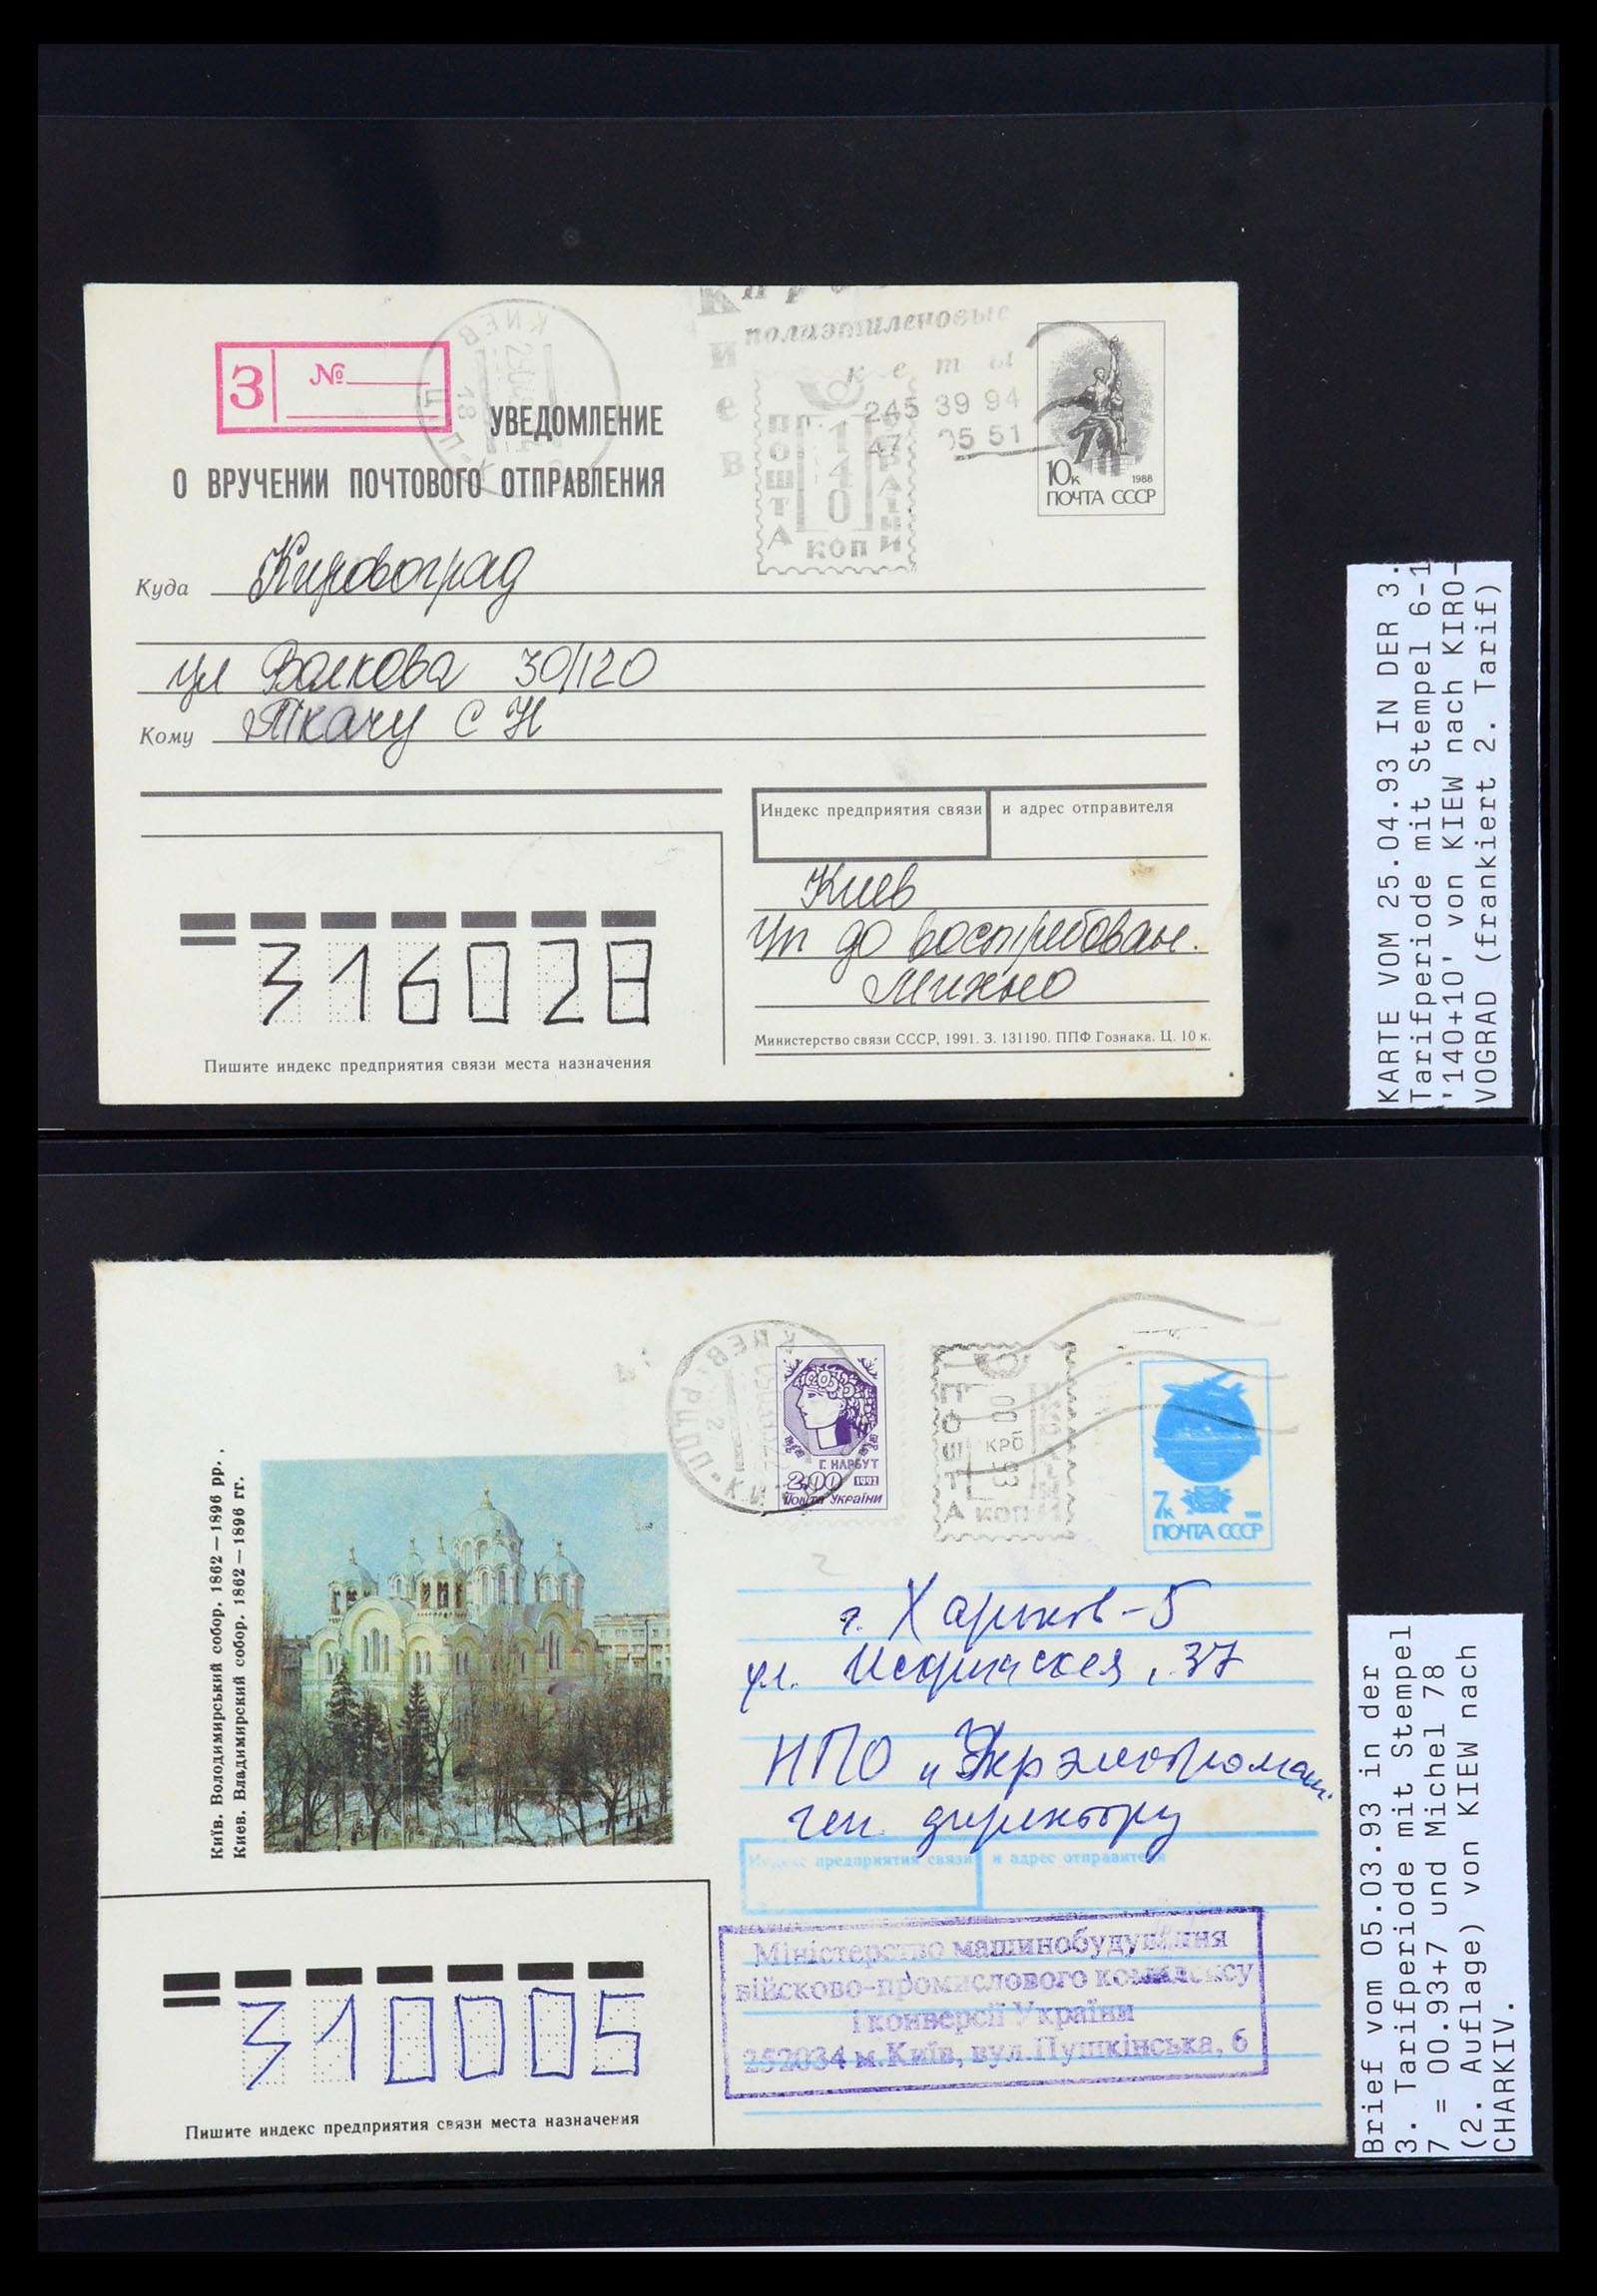 З №
УВЕДОМЛЕНИЕ
О ВРУЧЕНИИ ПОЧТОВОГО ОТПРАВЛЕНИЯ
КИЕВ
18
Киев
полиэтиленовые
245 39 94
47 05 51
ПОШТА
140
КОП
10к 1988
ПОЧТА СССР
Куда Кировоград
ул Волкова 30/120
Кому Ткачу С Н
Индекс предприятия связи и адрес отправителя
Киев
до востребован.
Михно
316028
Пишите индекс предприятия связи места назначения
Министерство связи СССР, 1991. З. 131190. ППФ Гознака. Ц. 10 к.
KARTE VOM 25.04.93 IN DER 3.
Tarifperiode mit Stempel 6-1
'140+10' von KIEW nach KIRO-
VOGRAD (frankiert 2. Tarif)
КИЕВ
Г. НАРБУТ
2.00 1992
Пошта України
ПОШТА
00
КРБ
93
КОП
7к
ПОЧТА СССР
Київ. Володимирський собор. 1862—1896 рр.
Киев. Владимирский собор. 1862—1896 гг.
г. Харьков-5
ул. 37
НПО
ген. директору
Индекс предприятия связи и адрес отправителя
Міністерство машинобудування
військово-промислового комплексу
і конверсії України
252034 м.Київ, вул.Пушкінська, 6
310005
Пишите индекс предприятия связи места назначения
Brief vom 05.03.93 in der
3. Tarifperiode mit Stempel
7 = 00.93+7 und Michel 78
(2. Auflage) von KIEW nach
CHARKIV.